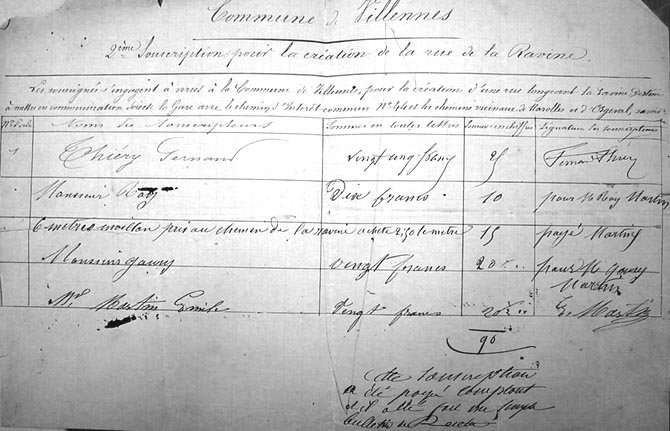 Commune de Villennes
2ème Souscription pour la création de la rue de la Ravine.
Les soussignés s'engagent à verser à la Commune de Villennes, pour la création d'une rue longeant la ravine destinée
à mettre en communication directe la Gare avec le chemin d'Intérêt commun Nº 44 et les chemins vicinaux de Marolles et d'Orgeval, savoir
Noms des Souscripteurs Sommes en toutes lettres Sommes en chiffres Signature des souscripteurs
1 Thiéry Fernand vingt cinq francs 25 Fernand Thiéry
Monsieur Dix francs 10 pour M Martin
6 metres moillon pris au chemin de la ravine a 2,50 le metre 15 payé Martin
Monsieur Gaury vingt francs 20 pour M Gaury
Martin
Mr Martin Emile Vingt francs 20 E. Martin
90
souscription
a été payé comptant
et il a été fait un